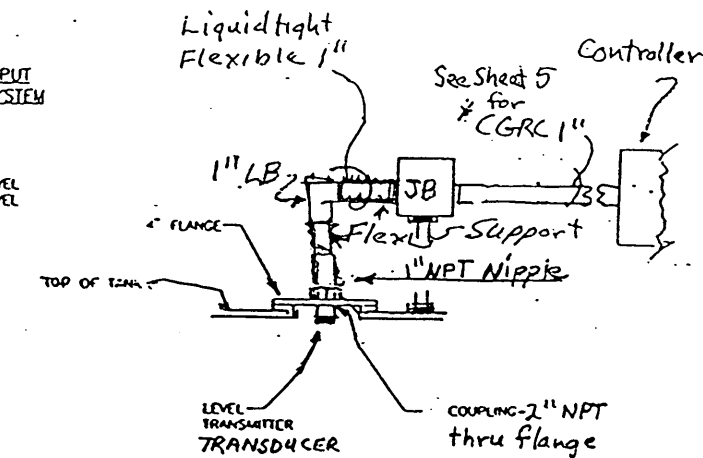 Liquid tight
Flexible 1"
Controller
See Sheet 5
* for
CGRC 1"
1" LB
JB
Flex
Support
4" FLANGE
1" NPT Nipple
TOP OF TANK
LEVEL
TRANSMITTER
TRANSDUCER
COUPLING-2" NPT
thru flange